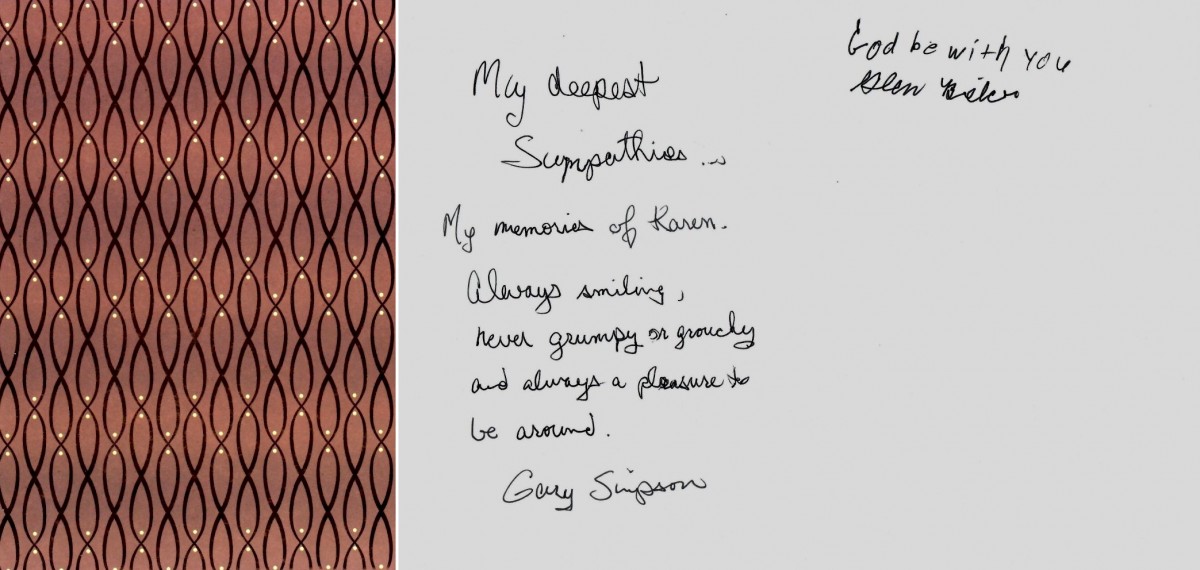 My deepest
Sympathies ...
My memories of Karen.
Always smiling,
never grumpy or grouchy
and always a pleasure to
be around.
Gary Simpson
God be with you
Glen